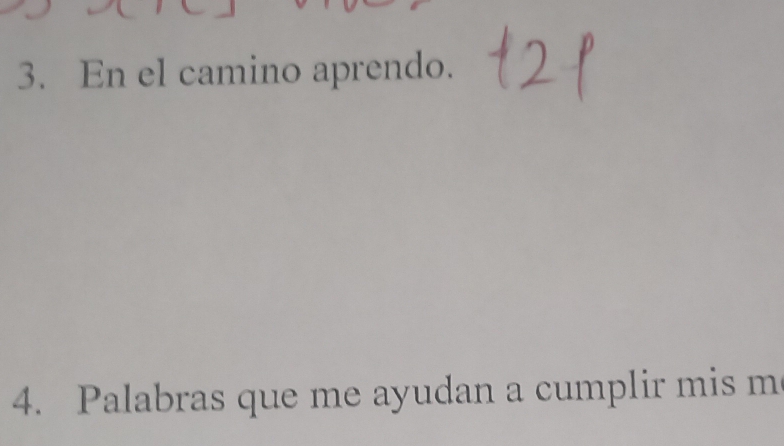 3. En el camino aprendo. +2p
4. Palabras que me ayudan a cumplir mis